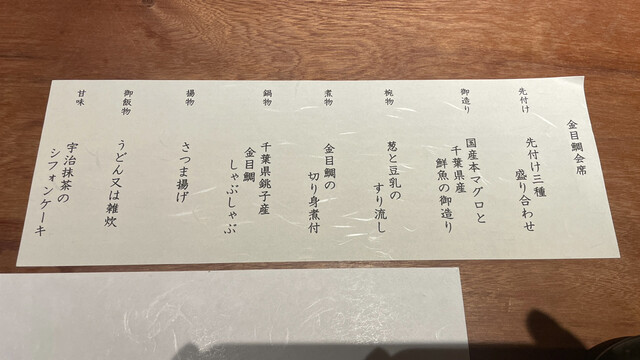 金目鯛会席
先付け
先付け三種
盛り合わせ
御造り
国産本マグロと
千葉県産
鮮魚の御造り
椀物
葱と豆乳の
すり流し
煮物
金目鯛の
切り身煮付
鍋物
千葉県銚子産
金目鯛
しゃぶしゃぶ
揚物
さつま揚げ
御飯物
うどん又は雑炊
甘味
宇治抹茶の
シフォンケーキ